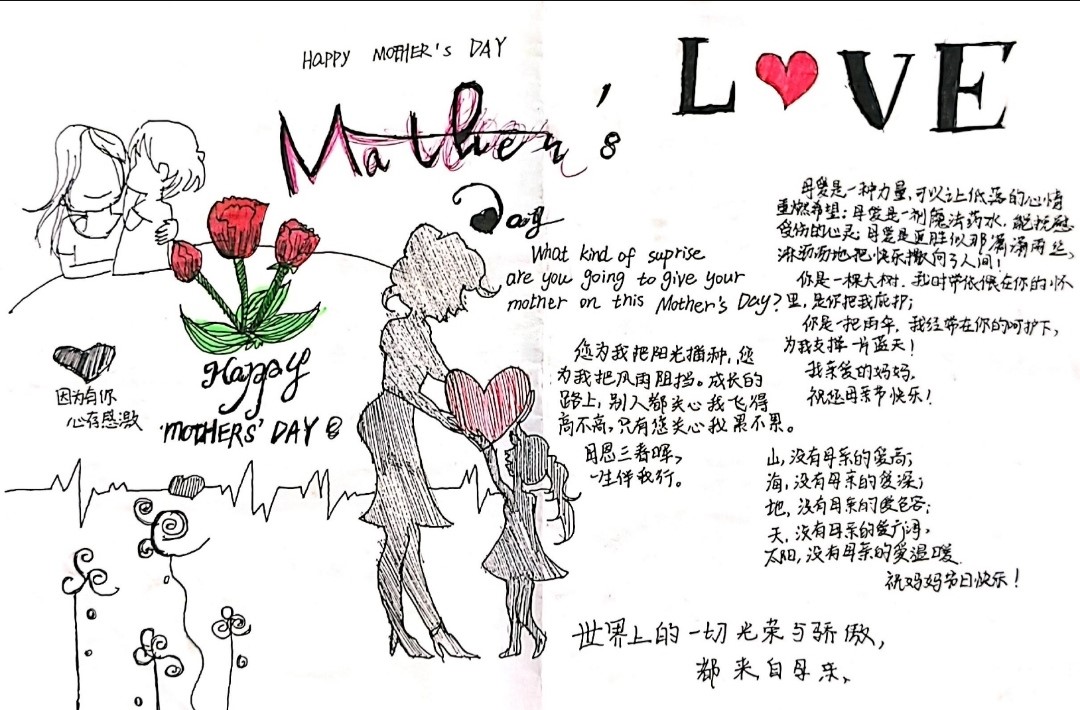 HAPPY MOTHER'S DAY
Mather's
Day
LOVE
What kind of suprise
are you going to give your
mother on this Mother's Day?
因为有你
心存感激
Happy
MOTHERS' DAY
您为我把阳光播种,您
为我把风雨阻挡。成长的
路上,别人都关心我飞得
高不高,只有您关心我累不累。
母恩三春晖,
一生伴我行。
母爱是一种力量,可以让低落的心情
重燃希望;母爱是一剂魔法药水,能抚慰
受伤的心灵;母爱是更胜似那潇潇雨丝,
淋沥沥地把快乐撒向了人间!
你是一棵大树,我时常依偎在你的怀
里,是你把我庇护;
你是一把雨伞,我经常在你的呵护下,
为我支撑一片蓝天!
我亲爱的妈妈,
祝您母亲节快乐!
山,没有母亲的爱高;
海,没有母亲的爱深;
地,没有母亲的爱包容;
天,没有母亲的爱广阔,
太阳,没有母亲的爱温暖.
祝妈妈节日快乐!
世界上的一切光荣与骄傲,
都来自母亲。